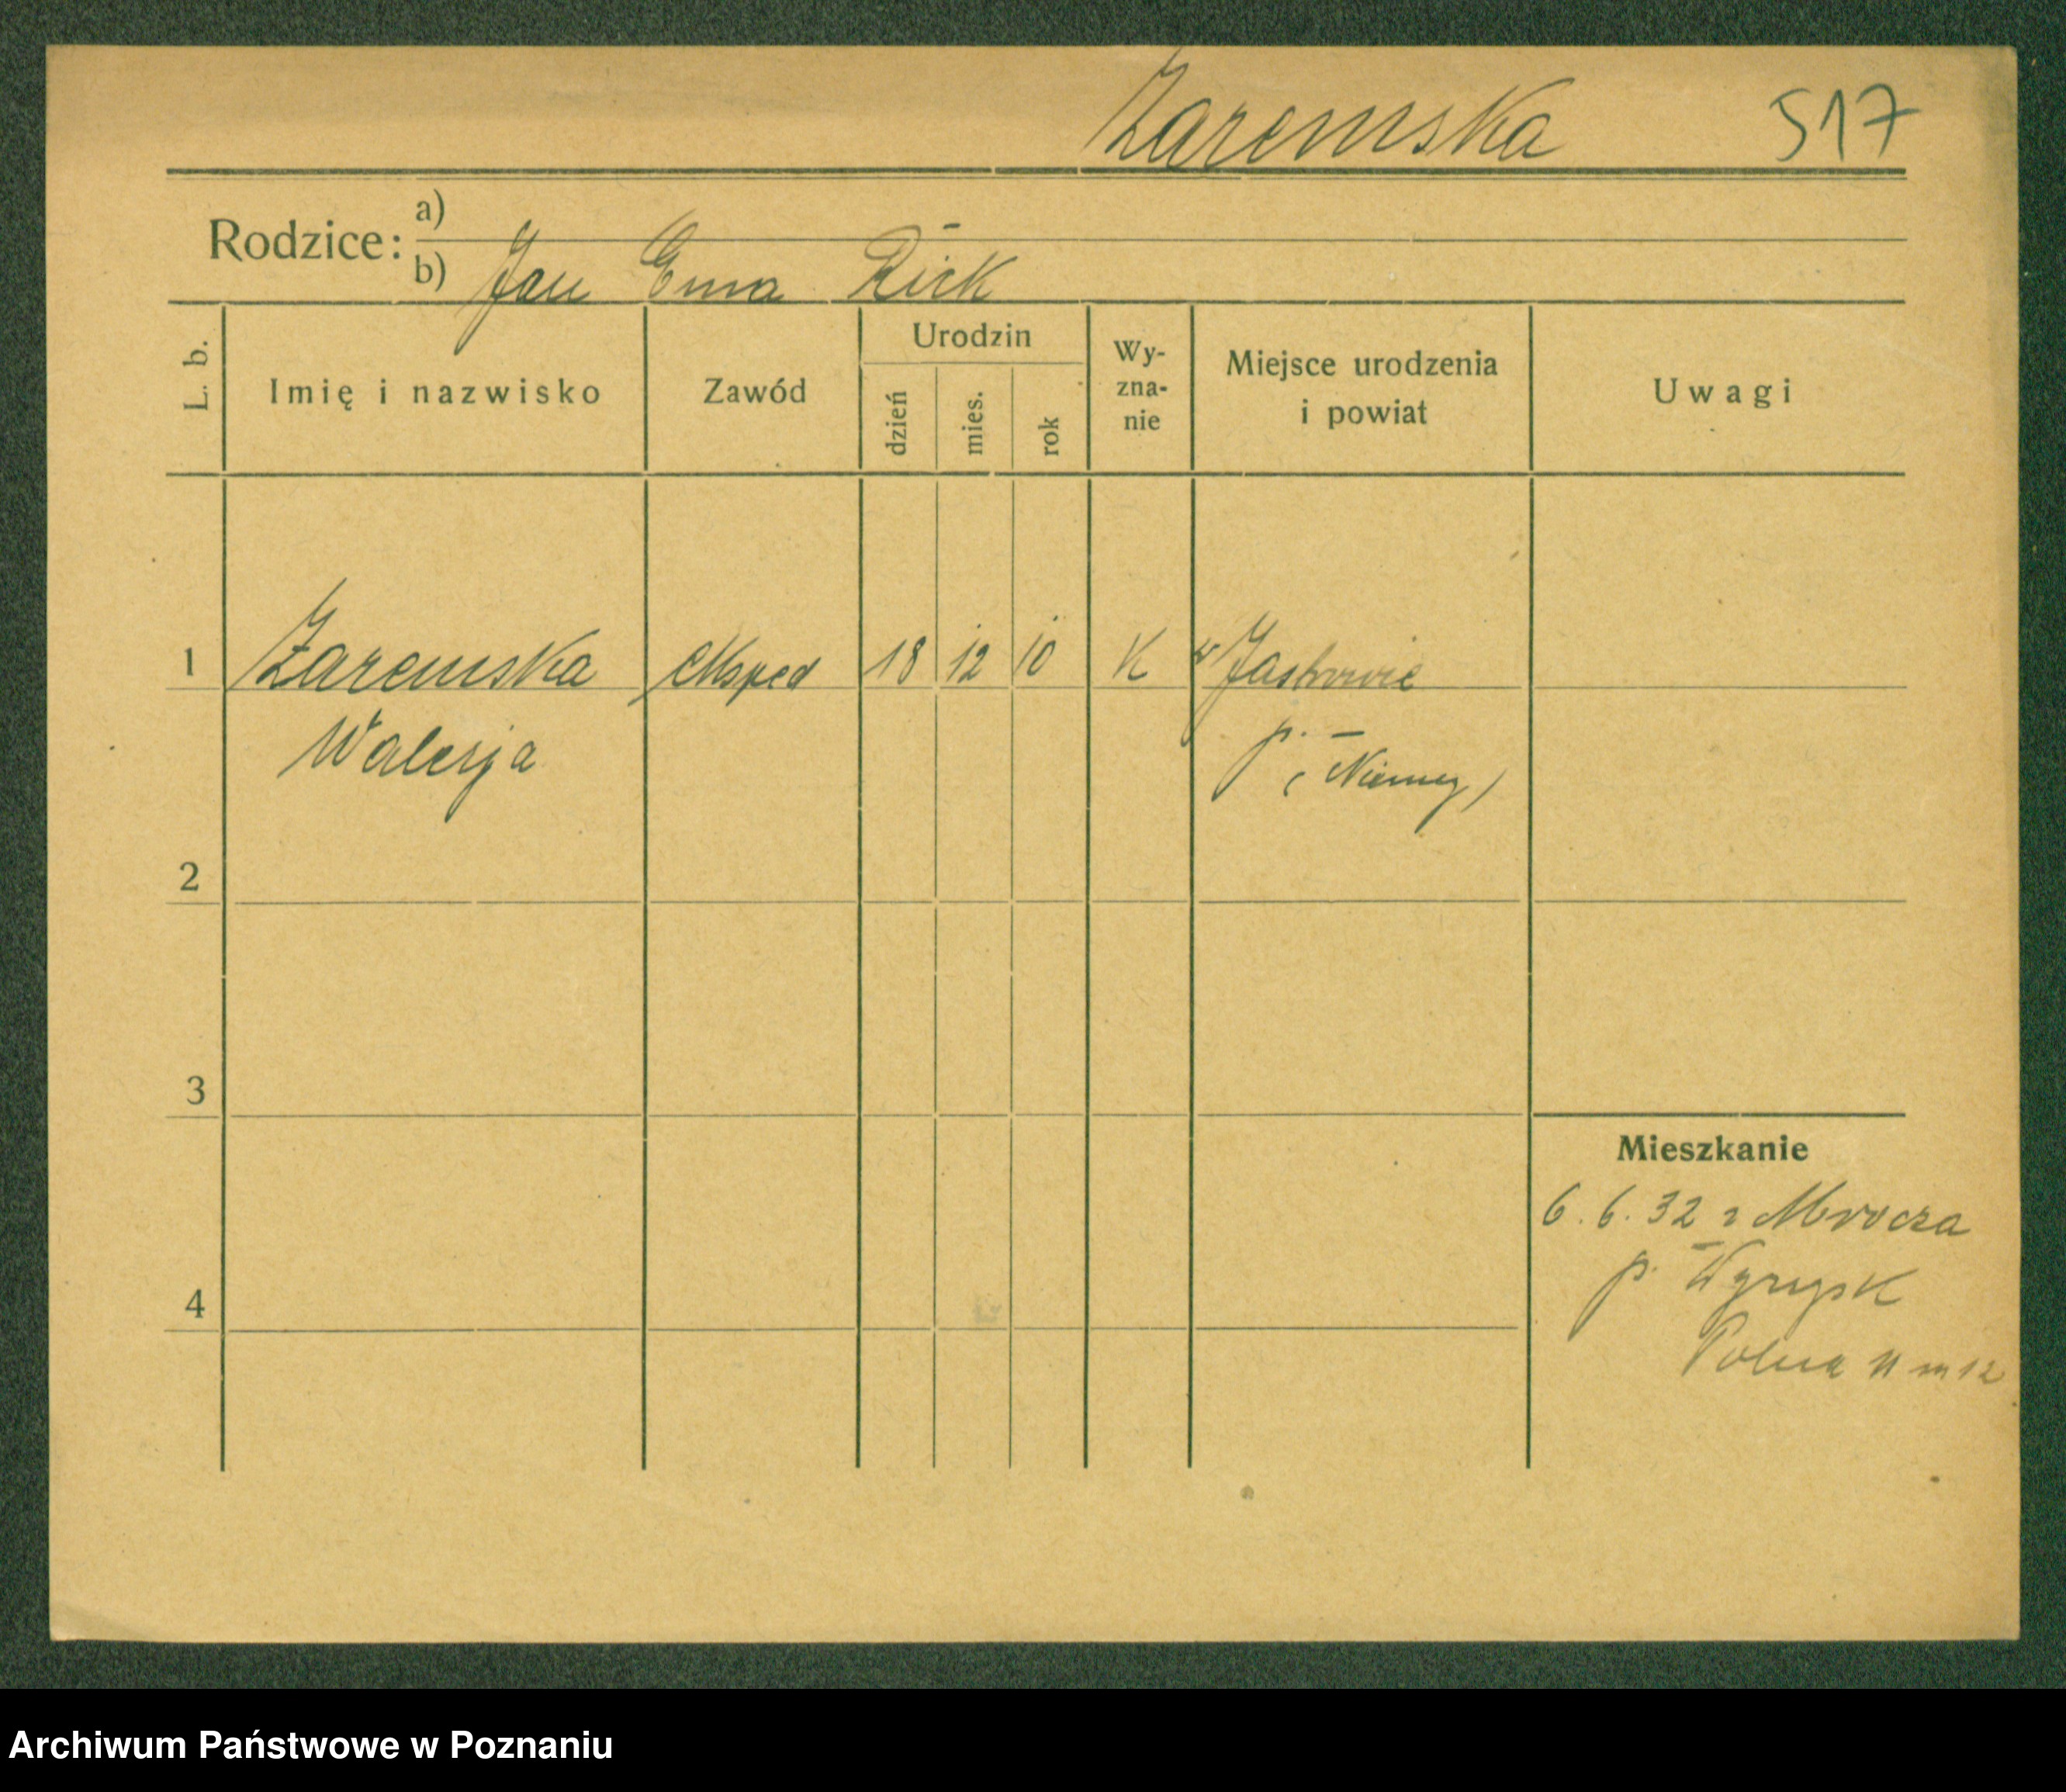 Zaremska 517
Rodzice:
a)
b) Jan Ema Rück
L. b.
Imię i nazwisko
Zawód
Urodzin
dzień
mies.
rok
Wy-
zna-
nie
Miejsce urodzenia
i powiat
Uwagi
1 Zaremska eksped 18 12 10 K w Jastrowie
Walerja p. —
(Niemcy)
2
3
4
Mieszkanie
6.6.32 z Mrocza
p. Wyrzysk
Polna 11 m 12
Archiwum Państwowe w Poznaniu